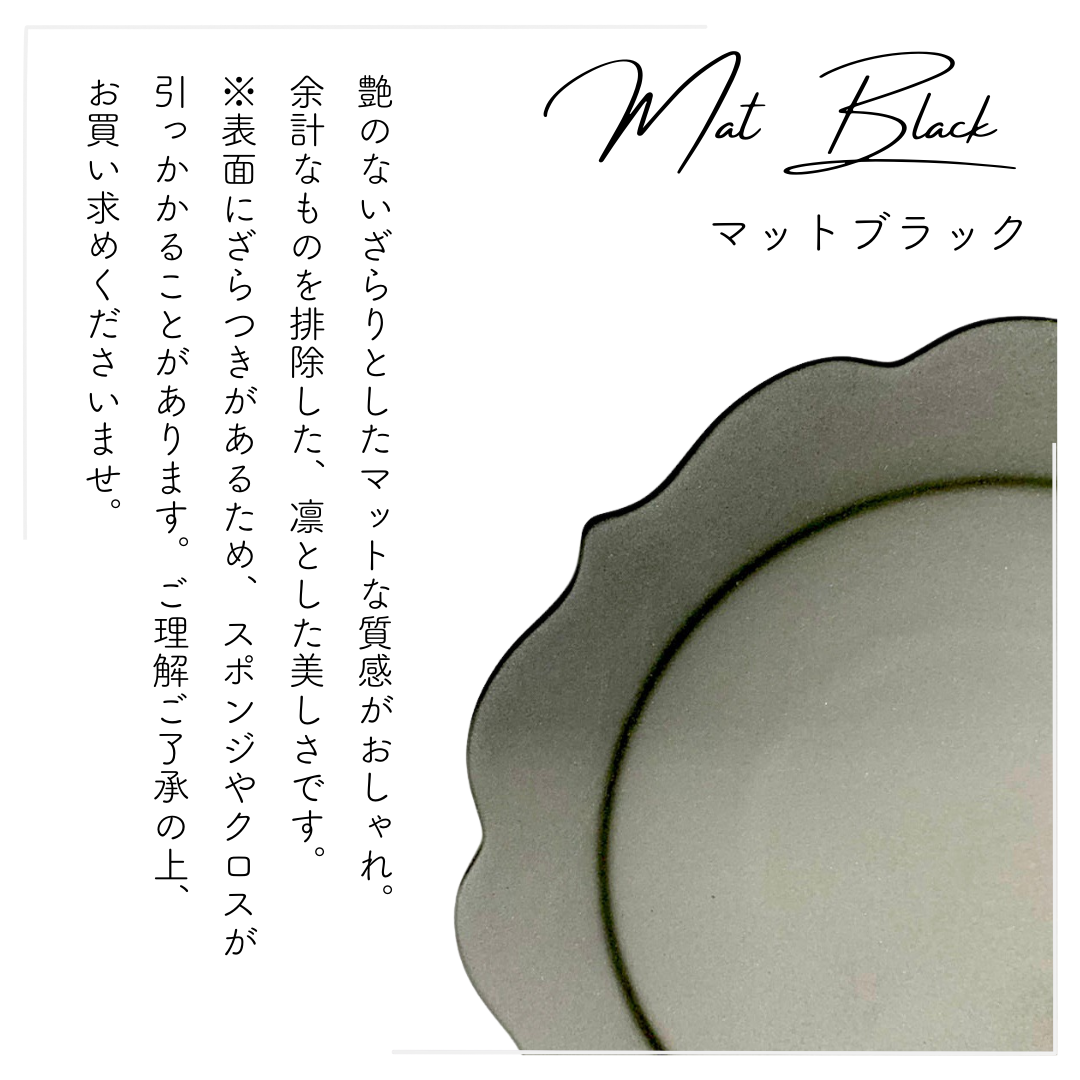 Mat Black
マットブラック
艶のないざらりとしたマットな質感がおしゃれ。
余計なものを排除した、凛とした美しさです。
※表面にざらつきがあるため、スポンジやクロスが
引っかかることがあります。ご理解ご了承の上、
お買い求めくださいませ。